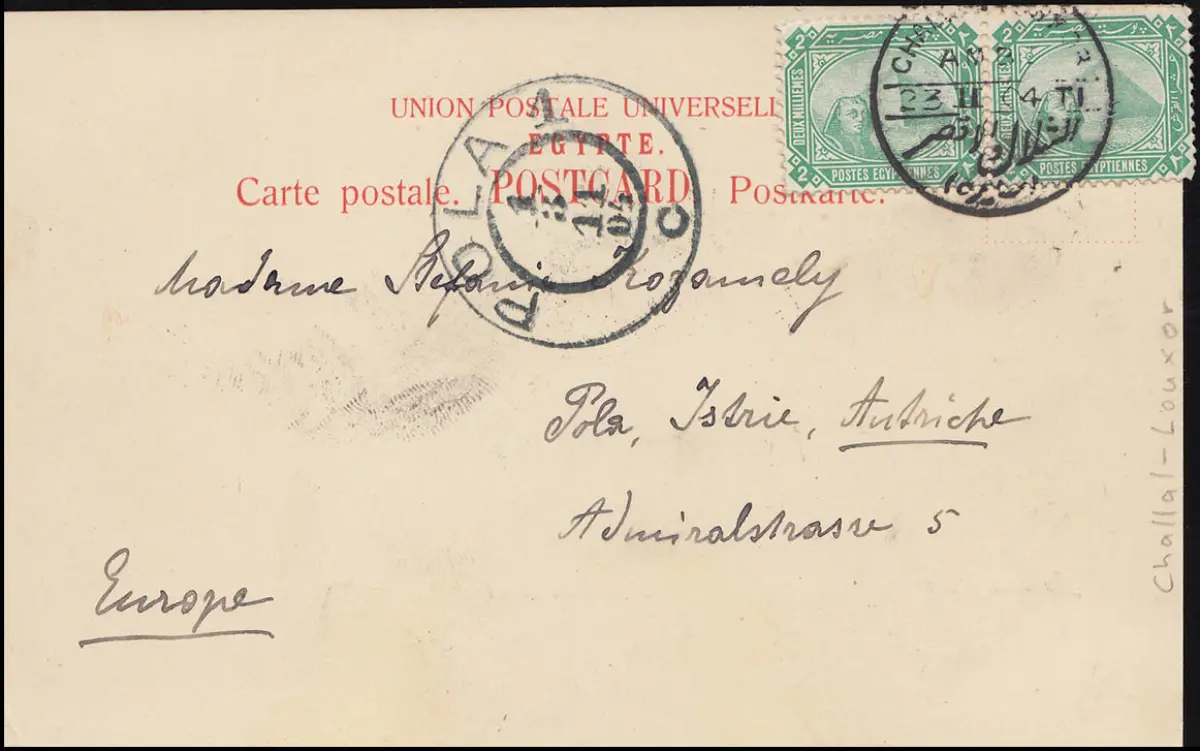 UNION POSTALE UNIVERSELL
EGYPTE.
Carte postale. POSTCARD. Postkarte.
2 2
DEUX MILLIEMES
POSTES EGYPTIENNES
2 2
2
POSTES EGYPTIENNES
23 II 04 TI
الشلال الاقصر
POLA 1
C
1 11
5 04
Madame Stefanie
Pola, Istrie, Autriche
Admiralstrasse 5
Europe
Challal - Louxor